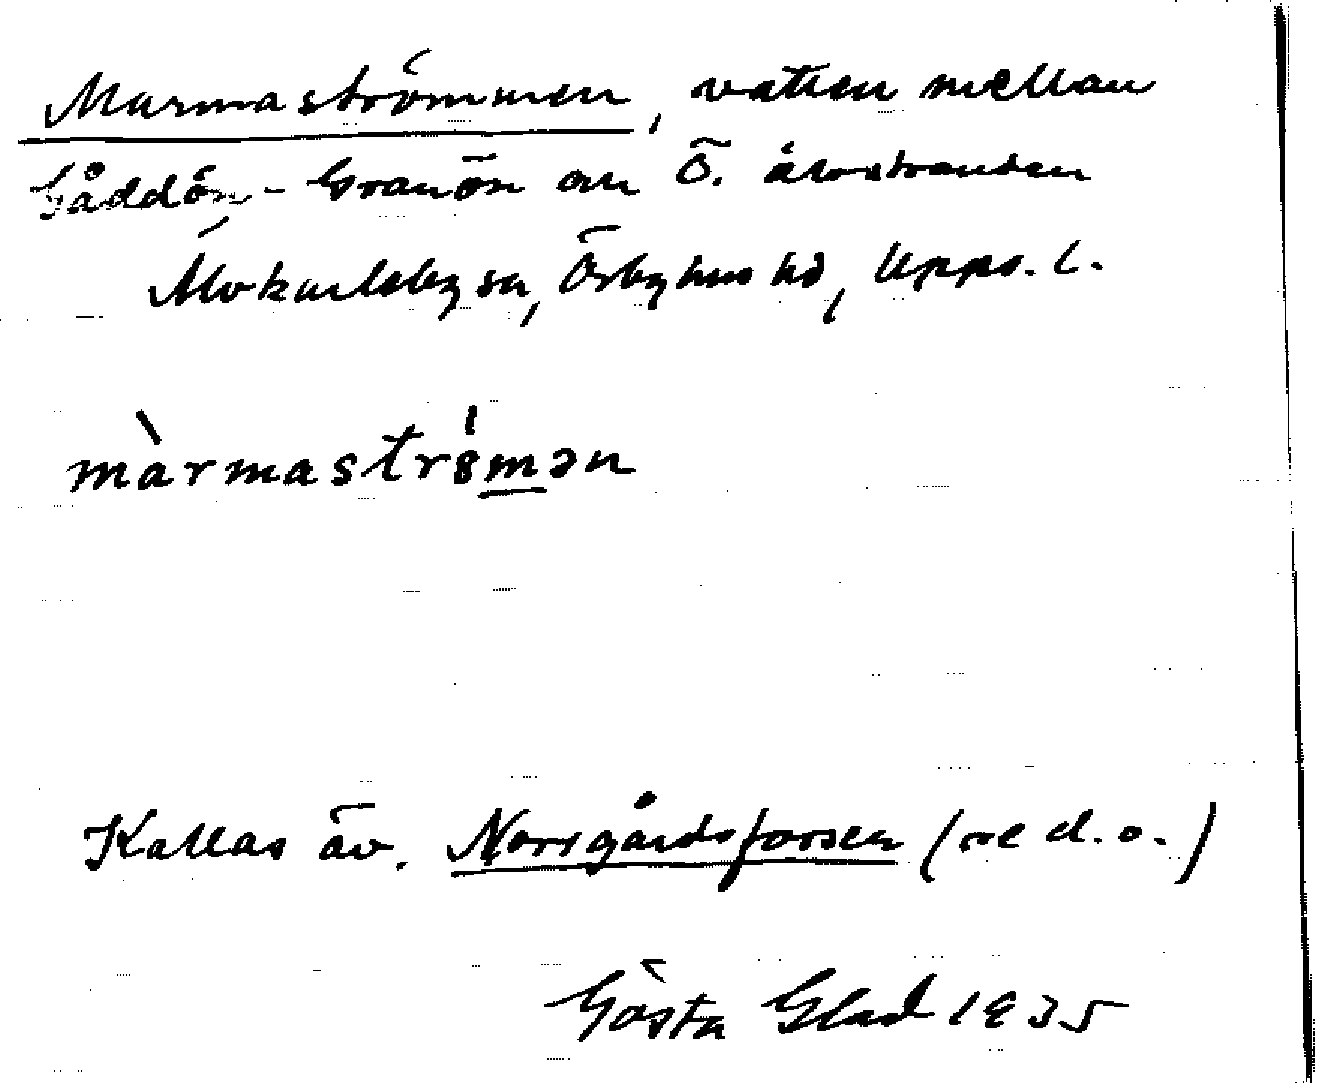 Marmaströmmen, vatten mellan
Gåddön - Granön om Ö. älvstranden
Älvkarleby sn, Örbyhus hd, Upps. l.
màrmaströ́mən
Kallas äv. Norrgårdsforsen (se d. o.)
Gösta Glad 1935